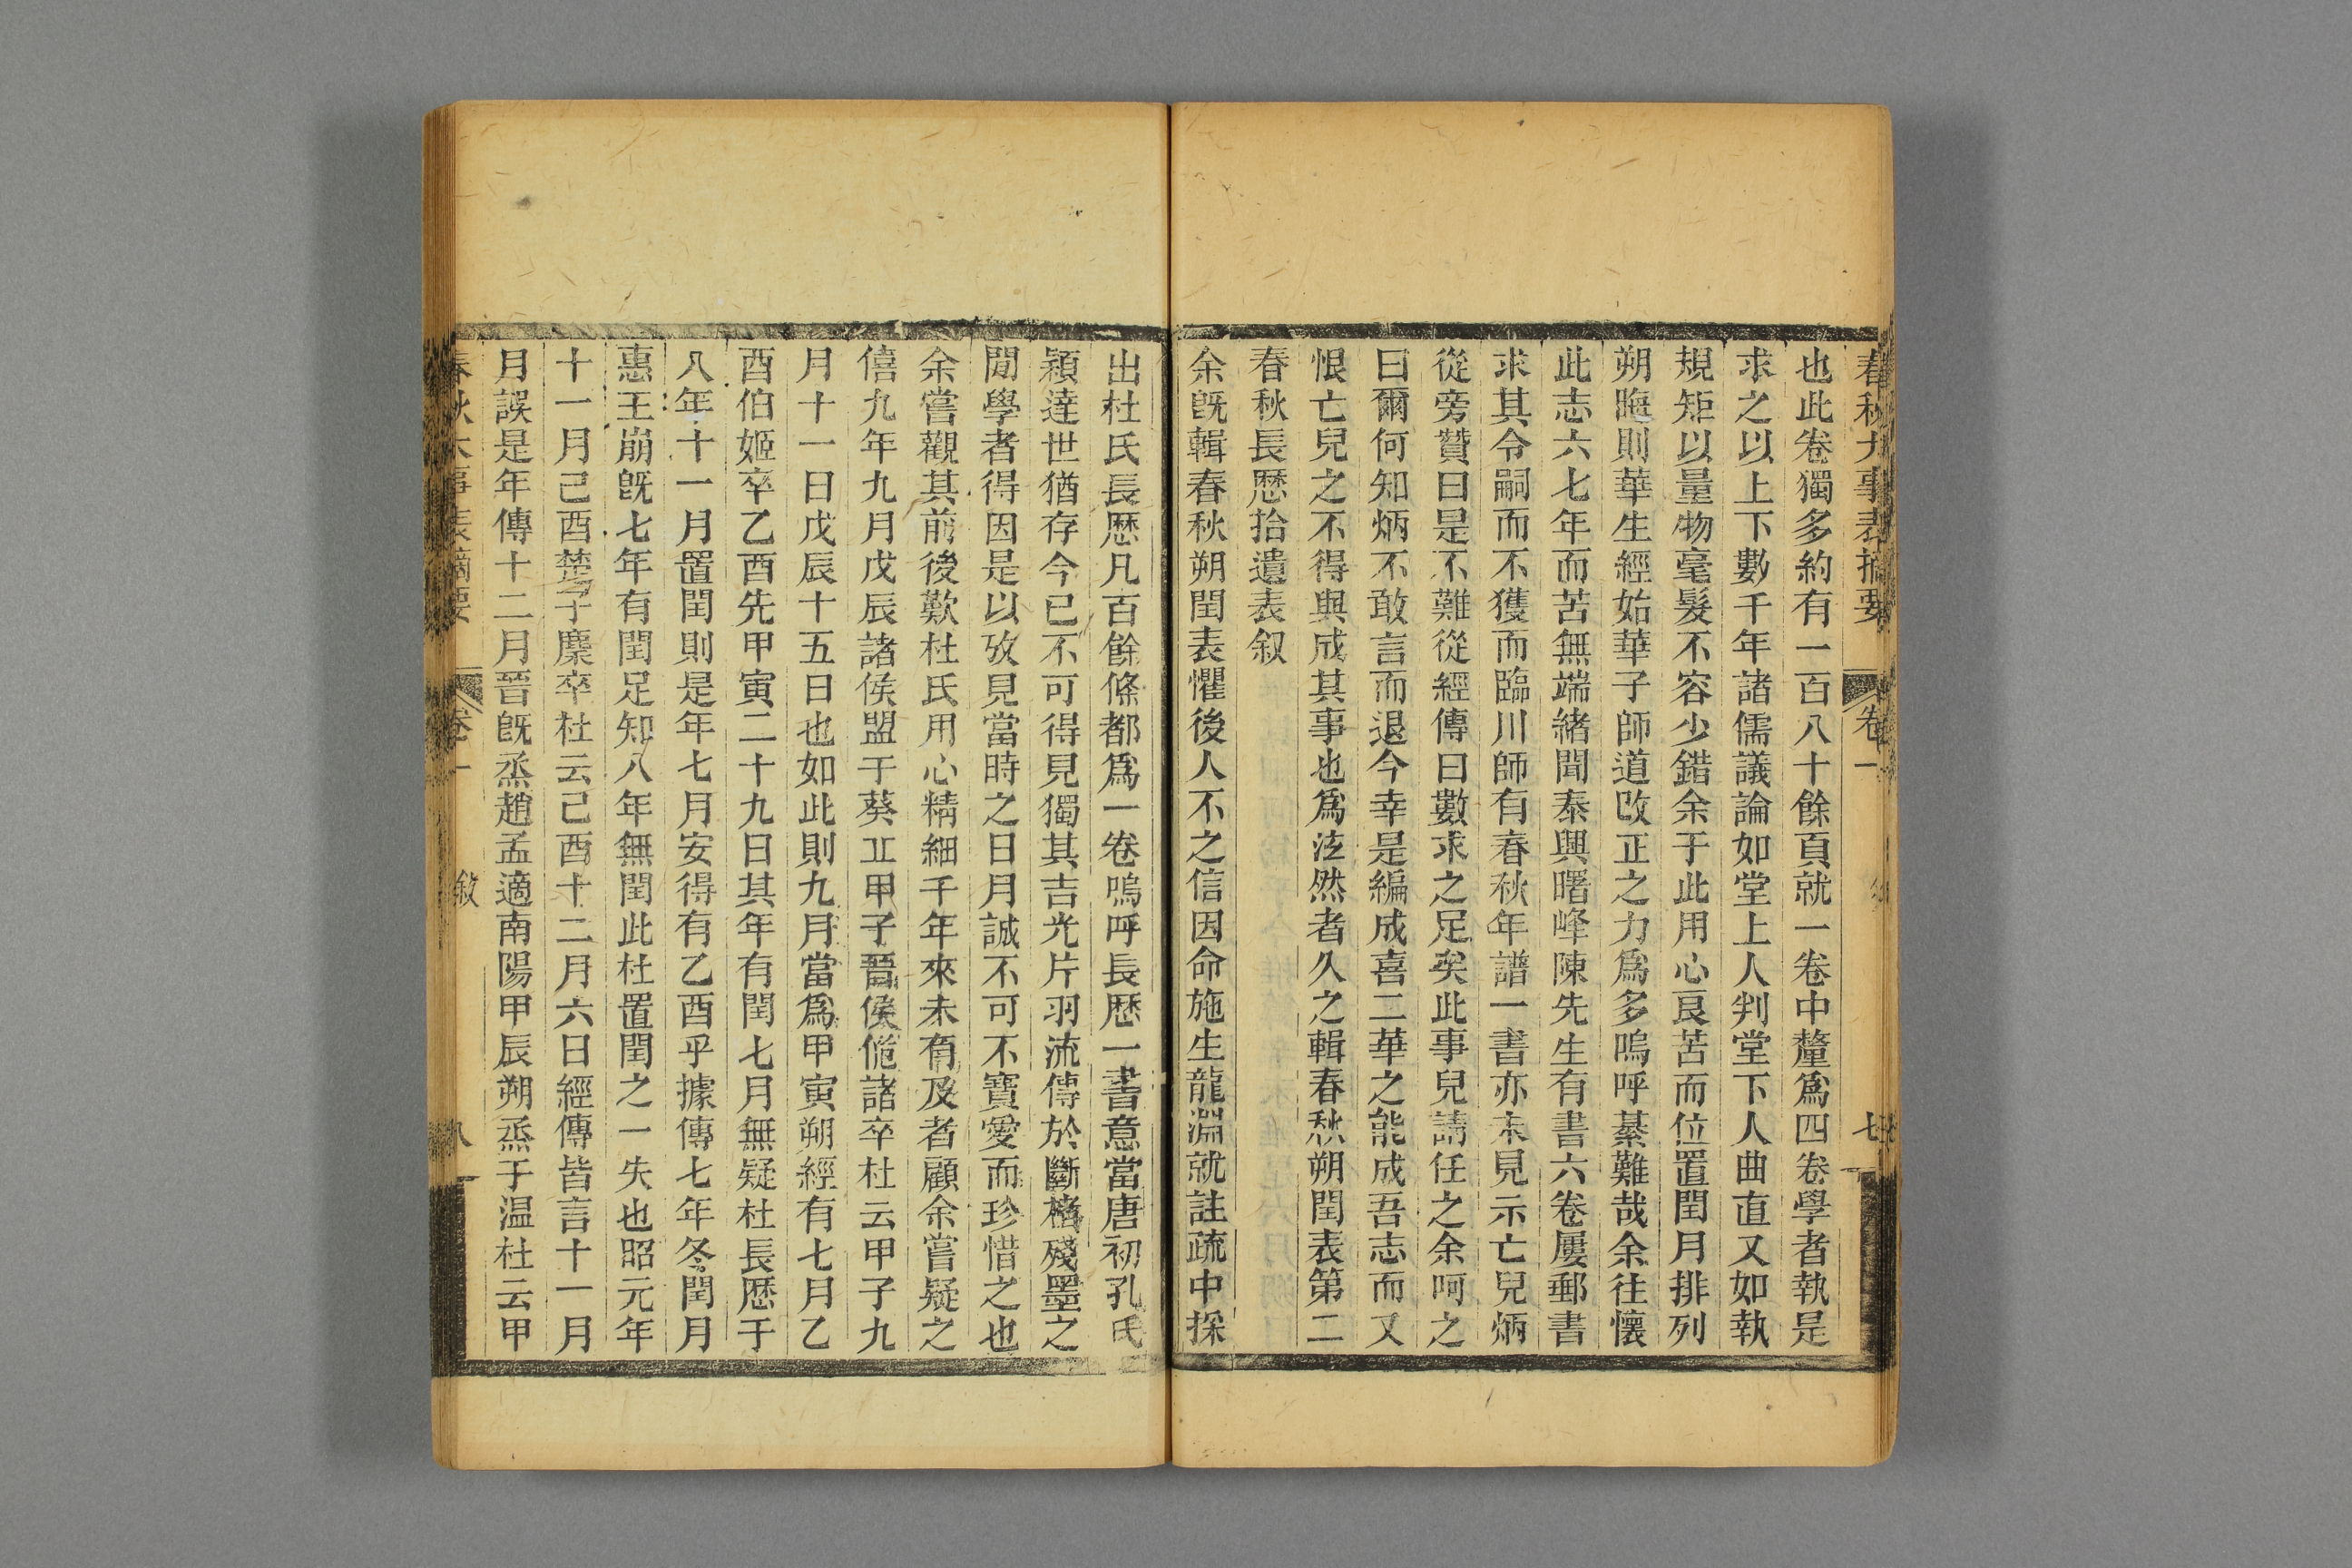 春秋大事表摘要
卷一
七
也此卷獨多約有一百八十餘頁就一卷中釐爲四卷學者執是
求之以上下數千年諸儒議論如堂上人判堂下人曲直又如執
規矩以量物毫髮不容少錯余于此用心良苦而位置閏月排列
朔晦則華生經始華子師道改正之力爲多嗚呼綦難哉余往懷
此志六七年而苦無端緒聞泰興曙峰陳先生有書六卷屢郵書
求其令嗣而不獲而臨川師有春秋年譜一書亦未見示亡兒炳
從旁贊曰是不難從經傳日數求之足矣此事兒請任之余呵之
曰爾何知炳不敢言而退今幸是編成喜二華之能成吾志而又
恨亡兒之不得與成其事也爲泫然者久之輯春秋朔閏表第二
春秋長歷拾遺表叙
余旣輯春秋朔閏表懼後人不之信因命施生龍淵就註疏中採
出杜氏長歷凡百餘條都爲一卷嗚呼長歷一書意當唐初孔氏
穎達世猶存今已不可得見獨其吉光片羽流傳於斷楮殘墨之
閒學者得因是以攷見當時之日月誠不可不寶愛而珍惜之也
余嘗觀其前後歎杜氏用心精細千年來未有及者顧余嘗疑之
僖九年九月戊辰諸侯盟于葵丘甲子晉侯佹諸卒杜云甲子九
月十一日戊辰十五日也如此則九月當爲甲寅朔經有七月乙
酉伯姬卒乙酉先甲寅二十九日其年有閏七月無疑杜長歷于
八年十一月置閏則是年七月安得有乙酉乎據傳七年冬閏月
惠王崩旣七年有閏足知八年無閏此杜置閏之一失也昭元年
十一月己酉楚子麇卒杜云己酉十二月六日經傳皆言十一月
月誤是年傳十二月晉旣烝趙孟適南陽甲辰朔烝于温杜云甲
春秋大事表摘要
卷一
敘
八